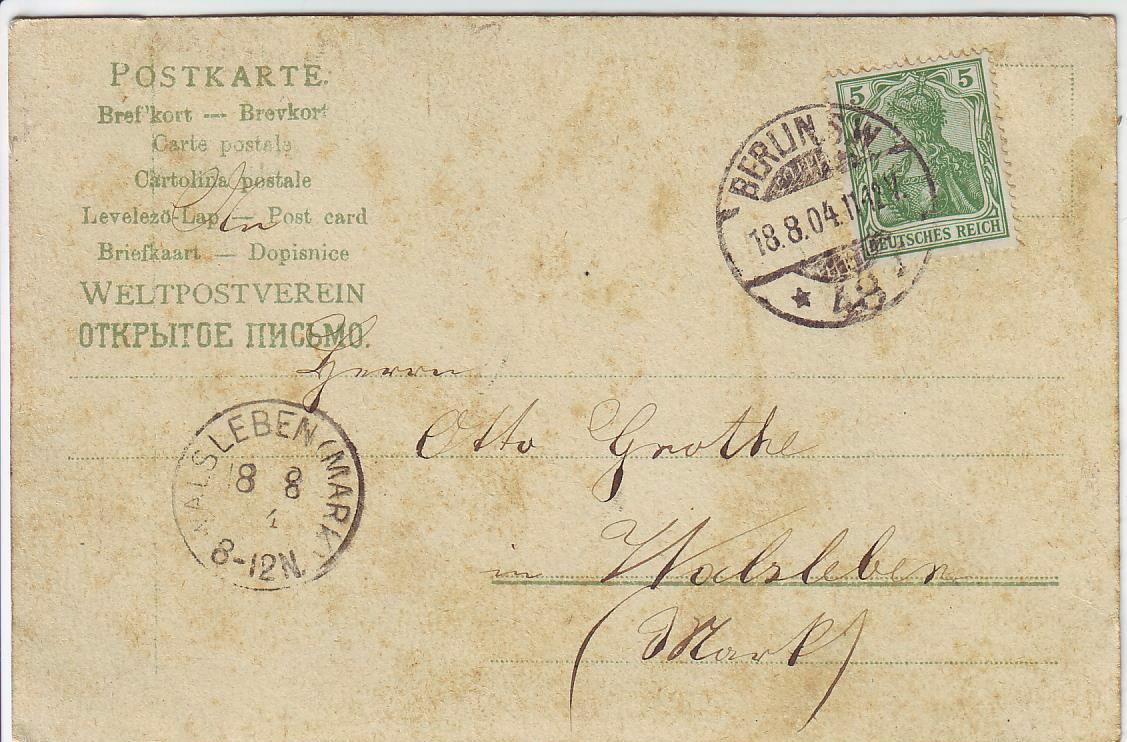 POSTKARTE.
Bref'kort — Brevkort
Carte postale
Cartolina postale
An
Levelező-Lap — Post card
Briefkaart — Dopisnice
WELTPOSTVEREIN
ОТКРЫТОЕ ПИСЬМО.
5 5
DEUTSCHES REICH
BERLIN. S.W
18.8.04. 11-12V.
* 48
Herrn
Otto Grothe
in Walsleben
(Mark)
WALSLEBEN (MARK)
18 8
4
8-12N.